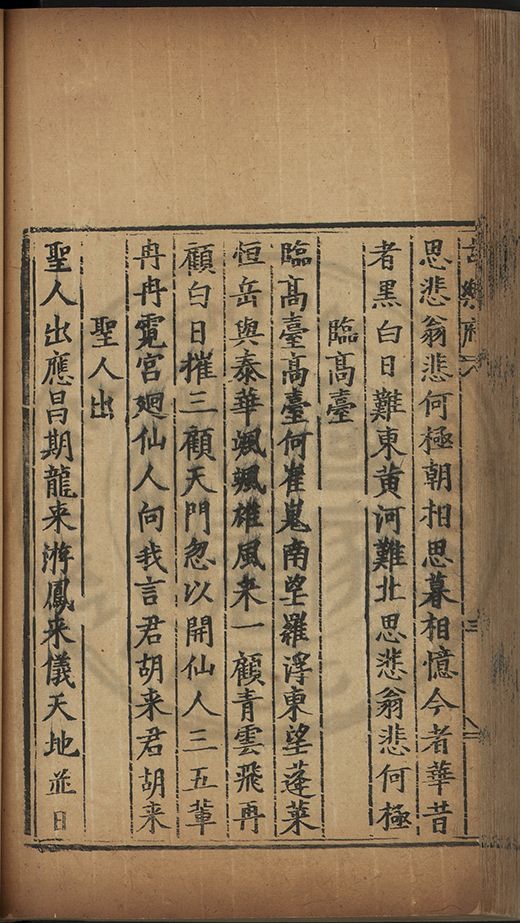 思悲翁悲何極朝相思暮相憶今者華昔
者黑白日難東黃河難北思悲翁悲何極
臨高臺
臨高臺高臺何崔嵬南望羅浮東望蓬萊
恒岳與泰華颯颯雄風来一顧青雲飛再
顧白日摧三顧天門忽以開仙人三五輩
冉冉霓宮廻仙人向我言君胡来君胡来
聖人出
聖人出應昌期龍来游鳳来儀天地並日